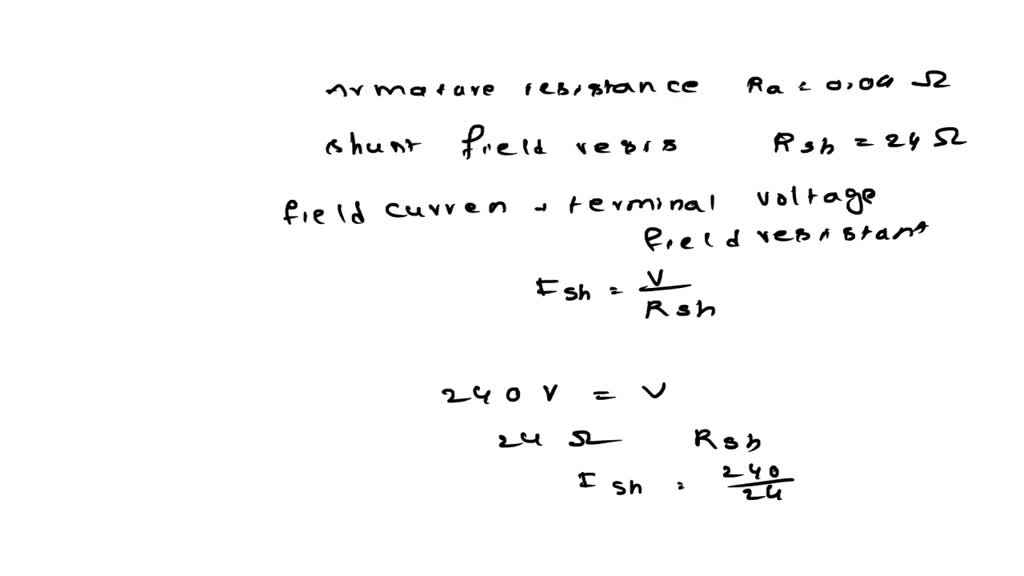 Armature resistance Ra = 0.04 Ω
shunt field resis Rsh = 24 Ω
field curren → terminal voltage
field resistant
Ish = V
Rsh
240 V = V
24 Ω Rsh
Ish = 240
24